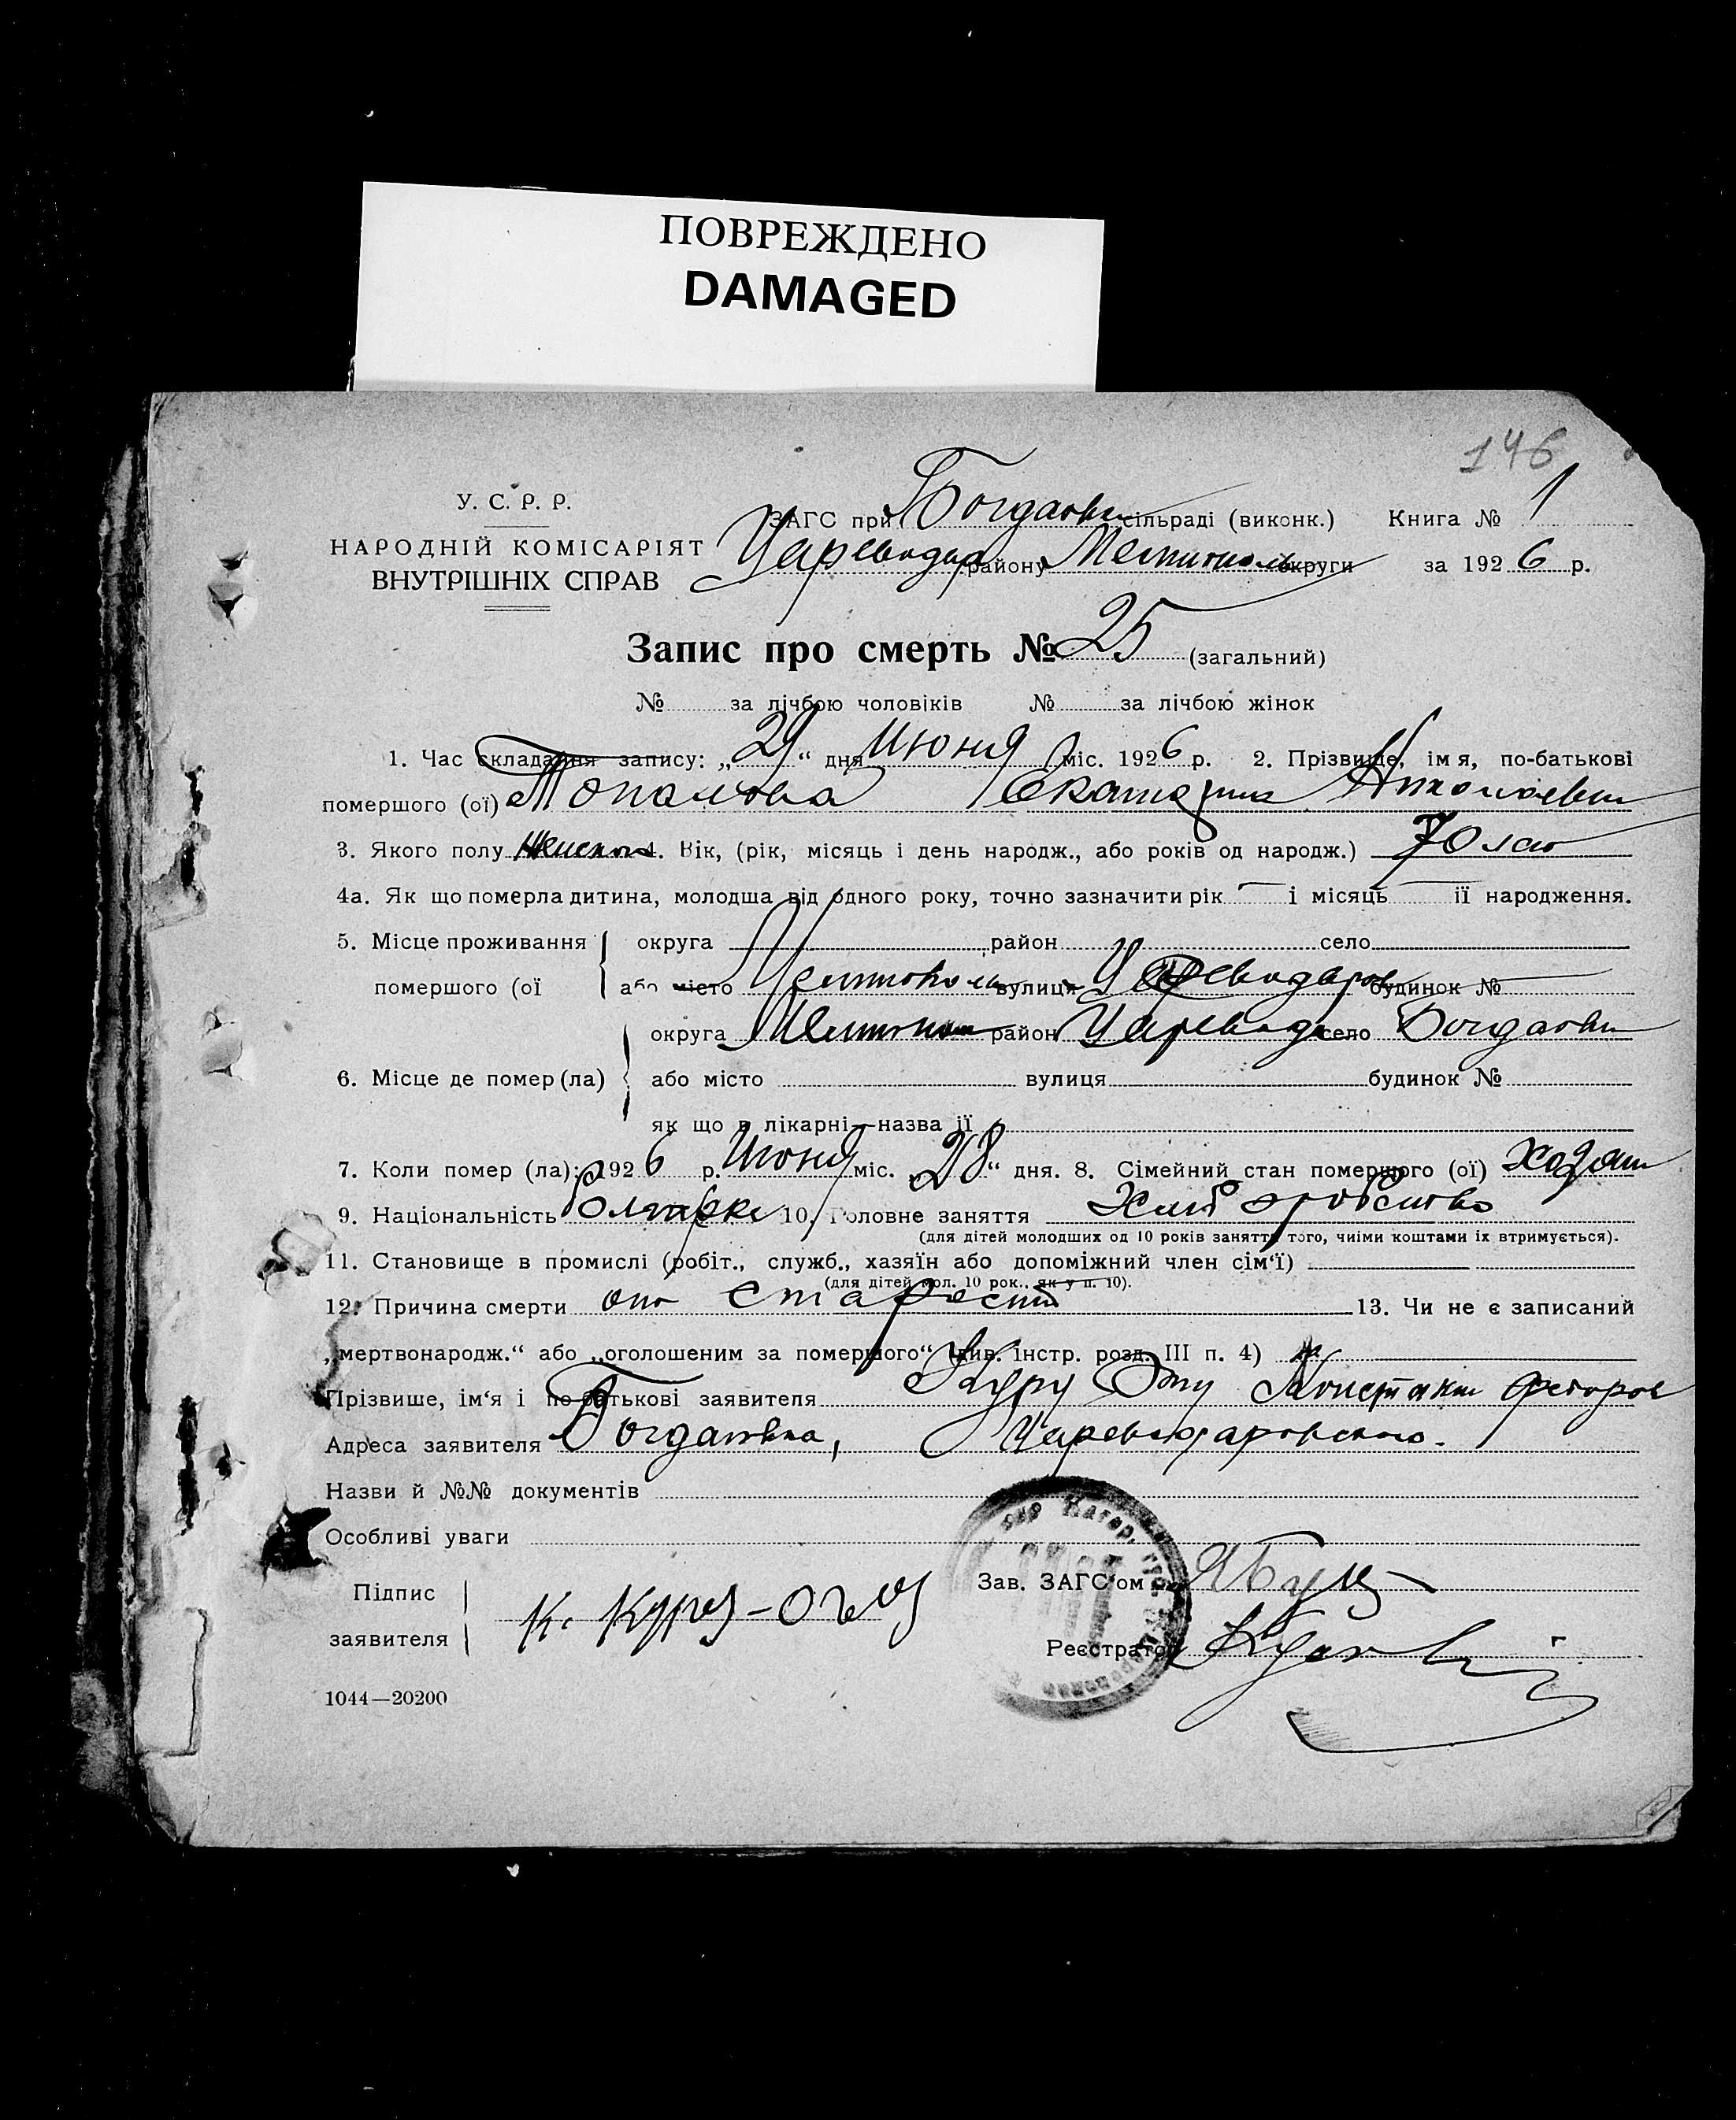 ПОВРЕЖДЕНО
DAMAGED
146
У. С. Р. Р.
НАРОДНІЙ КОМІСАРІЯТ
ВНУТРІШНІХ СПРАВ
ЗАГС при Богдановк сільраді (виконк.) Книга № 1
Цареводар району Мелитополь округи за 1926 р.
Запис про смерть № 25 (загальний)
№ за лічбою чоловіків № за лічбою жінок
1. Час складання запису: „29“ дня Июня міс. 1926 р. 2. Прізвище, імя, по-батькові
помершого (ої) Топалова Екатерина Николаевн
3. Якого полу женскаго 4. Вік, (рік, місяць і день народж., або років од народж.) 70 лет
4а. Як що померла дитина, молодша від одного року, точно зазначити рік — і місяць — її народження.
5. Місце проживання округа район село
помершого (ої або місто вулиця будинок №
округа Мелитопол район Царевод село Богдановк
6. Місце де помер (ла) або місто вулиця будинок №
як що в лікарні—назва її
7. Коли помер (ла): 1926 р. Июня міс. „28“ дня. 8. Сімейний стан помершого (ої)
9. Національність болгарка 10. Головне заняття Хлеборобство
(для дітей молодших од 10 років заняття того, чиїми коштами їх втримується).
11. Становище в промислі (робіт., служб., хазяїн або допоміжний член сім‘ї)
(для дітей мол. 10 рок., як у п. 10).
12. Причина смерти от старости 13. Чи не є записаний
„мертвонародж.“ або „оголошеним за помершого“ (див. інстр. розд. III п. 4)
Прізвище, ім‘я і по-батькові заявителя Куру Федоров
Адреса заявителя Богдановка, Цареводаровского.
Назви й №№ документів
Особливі уваги
Підпис
заявителя
К. Куру-Оглу
Зав. ЗАГС‘ом
Реєстратор
1044—20200